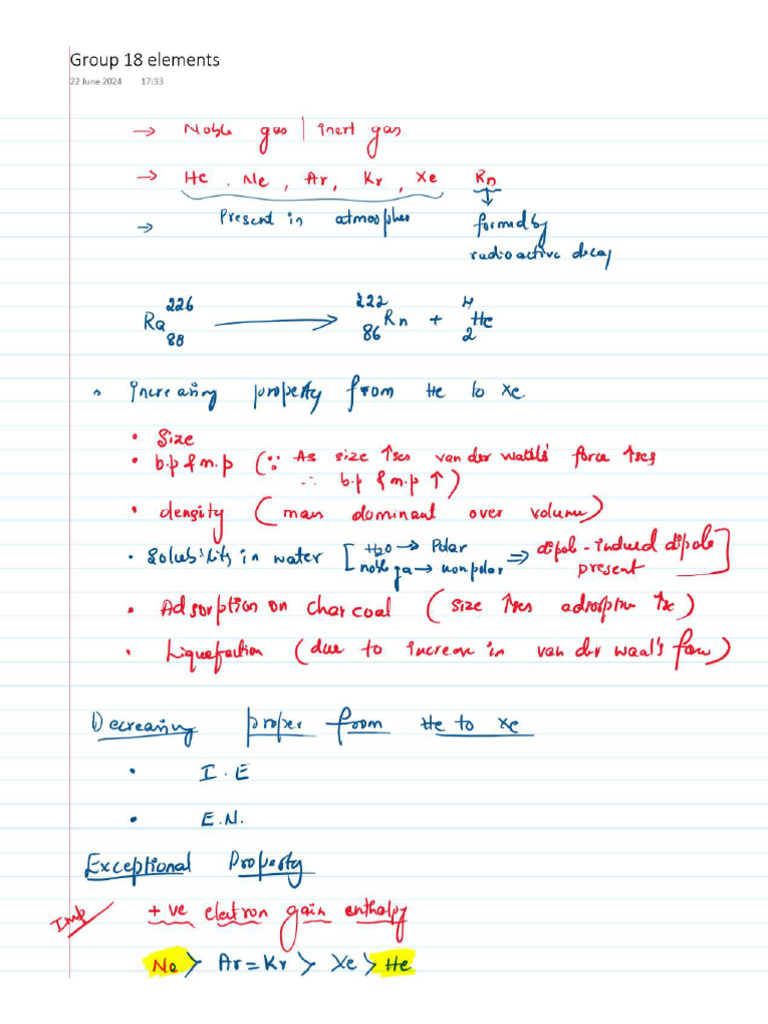 Group 18 elements
22 June 2024 17:33
→ Noble gas | inert gas
→ He, Ne, Ar, Kr, Xe Rn
→ Present in atmospher formed by
radioactive decay
Ra 226 88 → 222 86 Rn + 4 2 He
Increasing property from He to Xe
• Size
• b.p & m.p (∵ As size ↑ses van der waall's force ↑ses
∴ b.p & m.p ↑)
• density (mass dominant over volume)
• Solubility in water [H2O → Polar
noble ga → nonpolar ⇒ dipole-induced dipole
present]
• Adsorption on charcoal (size ↑ses adsorption ↑se)
• Liquefaction (due to increase in van der waal's force)
Decreasing proper from He to Xe
• I.E
• E.N.
Exceptional Property
Imp +ve electron gain enthalpy
Ne > Ar = Kr > Xe > He